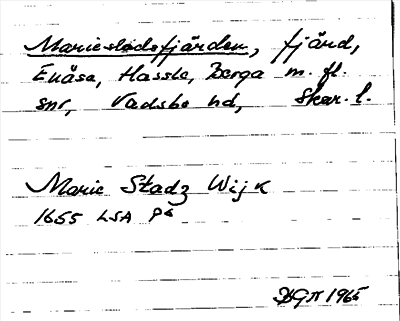 Mariestadsfjärden, fjärd,
Enåsa, Hassle, Berga m. fl.
snr, Vadsbo hd, Skar. l.
Marie Stadz Wijk
1655 LSA P6
1965